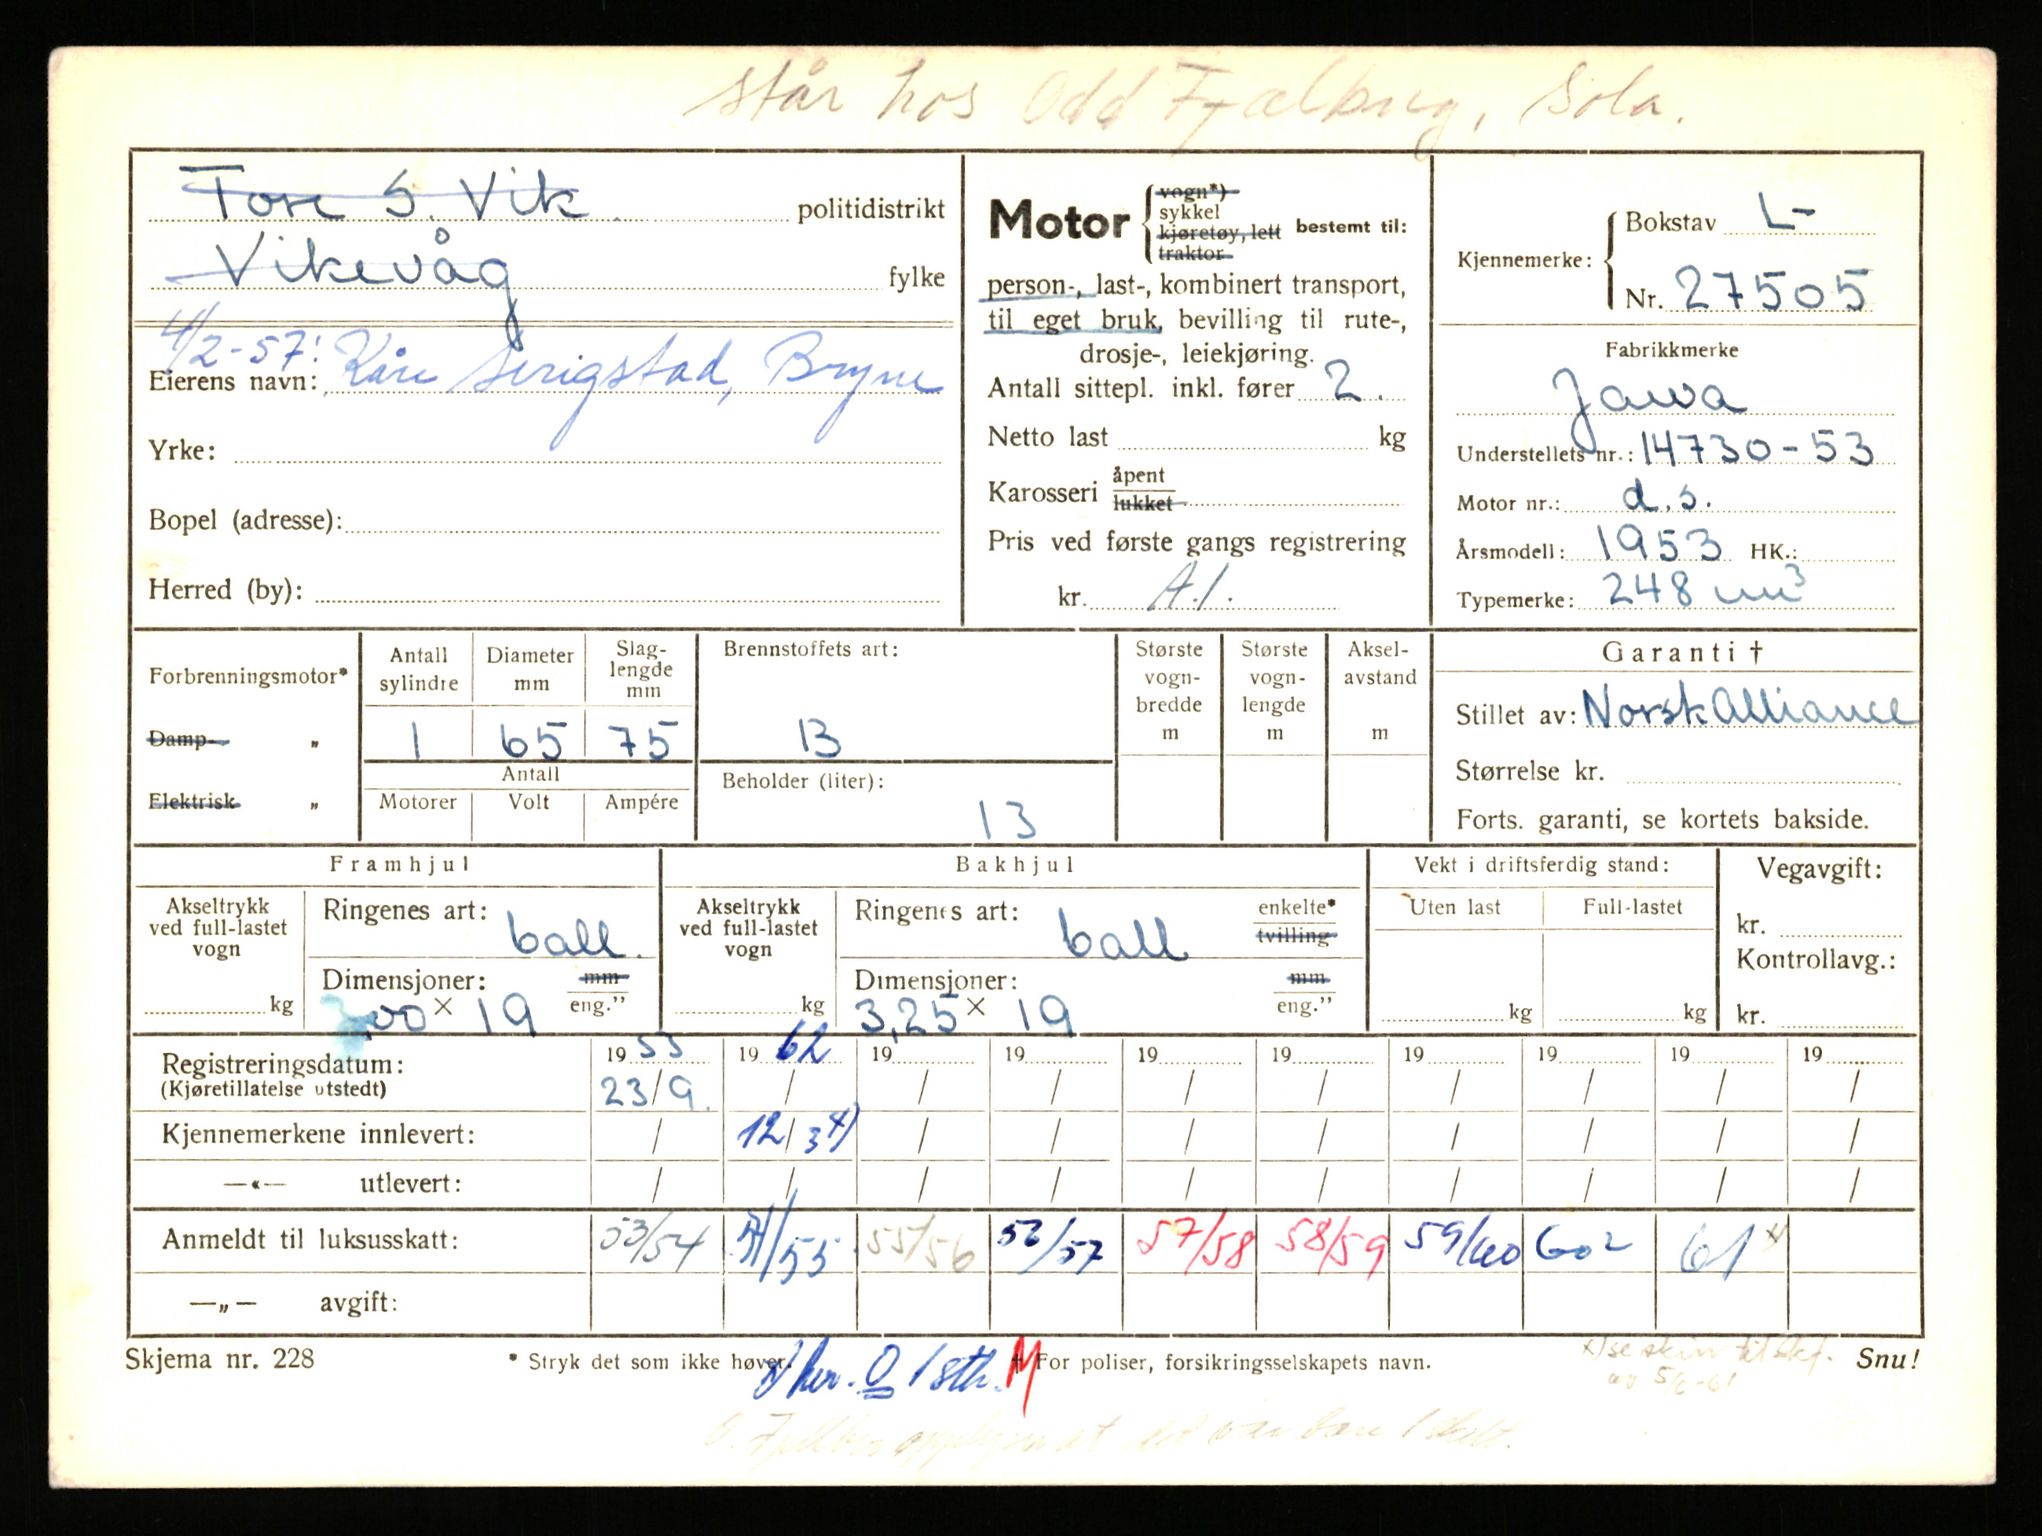 står hos Odd Fjælberg, Sola.
Tore S. Vik politidistrikt
Vikevåg fylke
4/2-57:
Eierens navn: Kåre Serigstad, Bryne
Yrke:
Bopel (adresse):
Herred (by):
Motor { vogn*) sykkel kjøretøy, lett traktor bestemt til:
person-, last-, kombinert transport,
til eget bruk, bevilling til rute-,
drosje-, leiekjøring.
Antall sittepl. inkl. fører 2.
Netto last kg
Karosseri åpent lukket
Pris ved første gangs registrering
kr. A.l.
Kjennemerke: { Bokstav L-
Nr. 27505
Fabrikkmerke
Jawa
Understellets nr.: 14730-53
Motor nr.: d.s.
Årsmodell: 1953 HK.:
Typemerke: 248 cm3
Forbrenningsmotor*
Damp- „
Elektrisk „
Antall sylindre Diameter mm Slag-lengde mm
1 65 75
Antall
Motorer Volt Ampére
Brennstoffets art:
B
Beholder (liter):
13
Største vogn-bredde m
Største vogn-lengde m
Aksel-avstand m
Garanti †
Stillet av: Norsk Alliance
Størrelse kr.
Forts. garanti, se kortets bakside.
Framhjul
Akseltrykk ved full-lastet vogn kg
Ringenes art: ball.
Dimensjoner: mm
,00 x 19 eng.”
Bakhjul
Akseltrykk ved full-lastet vogn kg
Ringenes art: ball enkelte* tvilling
Dimensjoner: mm
3,25 x 19 eng.”
Vekt i driftsferdig stand:
Uten last Full-lastet
kg kg
Vegavgift:
kr.
Kontrollavg.:
kr.
Registreringsdatum: 1953 1962 19 19 19 19 19 19 19 19
(Kjøretillatelse utstedt) 23/9. / / / / / / / / /
Kjennemerkene innlevert: / 12/3 x) / / / / / / / /
—«— utlevert: / / / / / / / / / /
Anmeldt til luksusskatt: 53/54 54/55 55/56 56/57 57/58 58/59 59/60 60² 61 x)
—„— avgift:
Skjema nr. 228 * Stryk det som ikke høver. † For poliser, forsikringsselskapets navn. Snu!
x) se skriv til skf.
av 5/6-61
x) her. O 1 stk. M